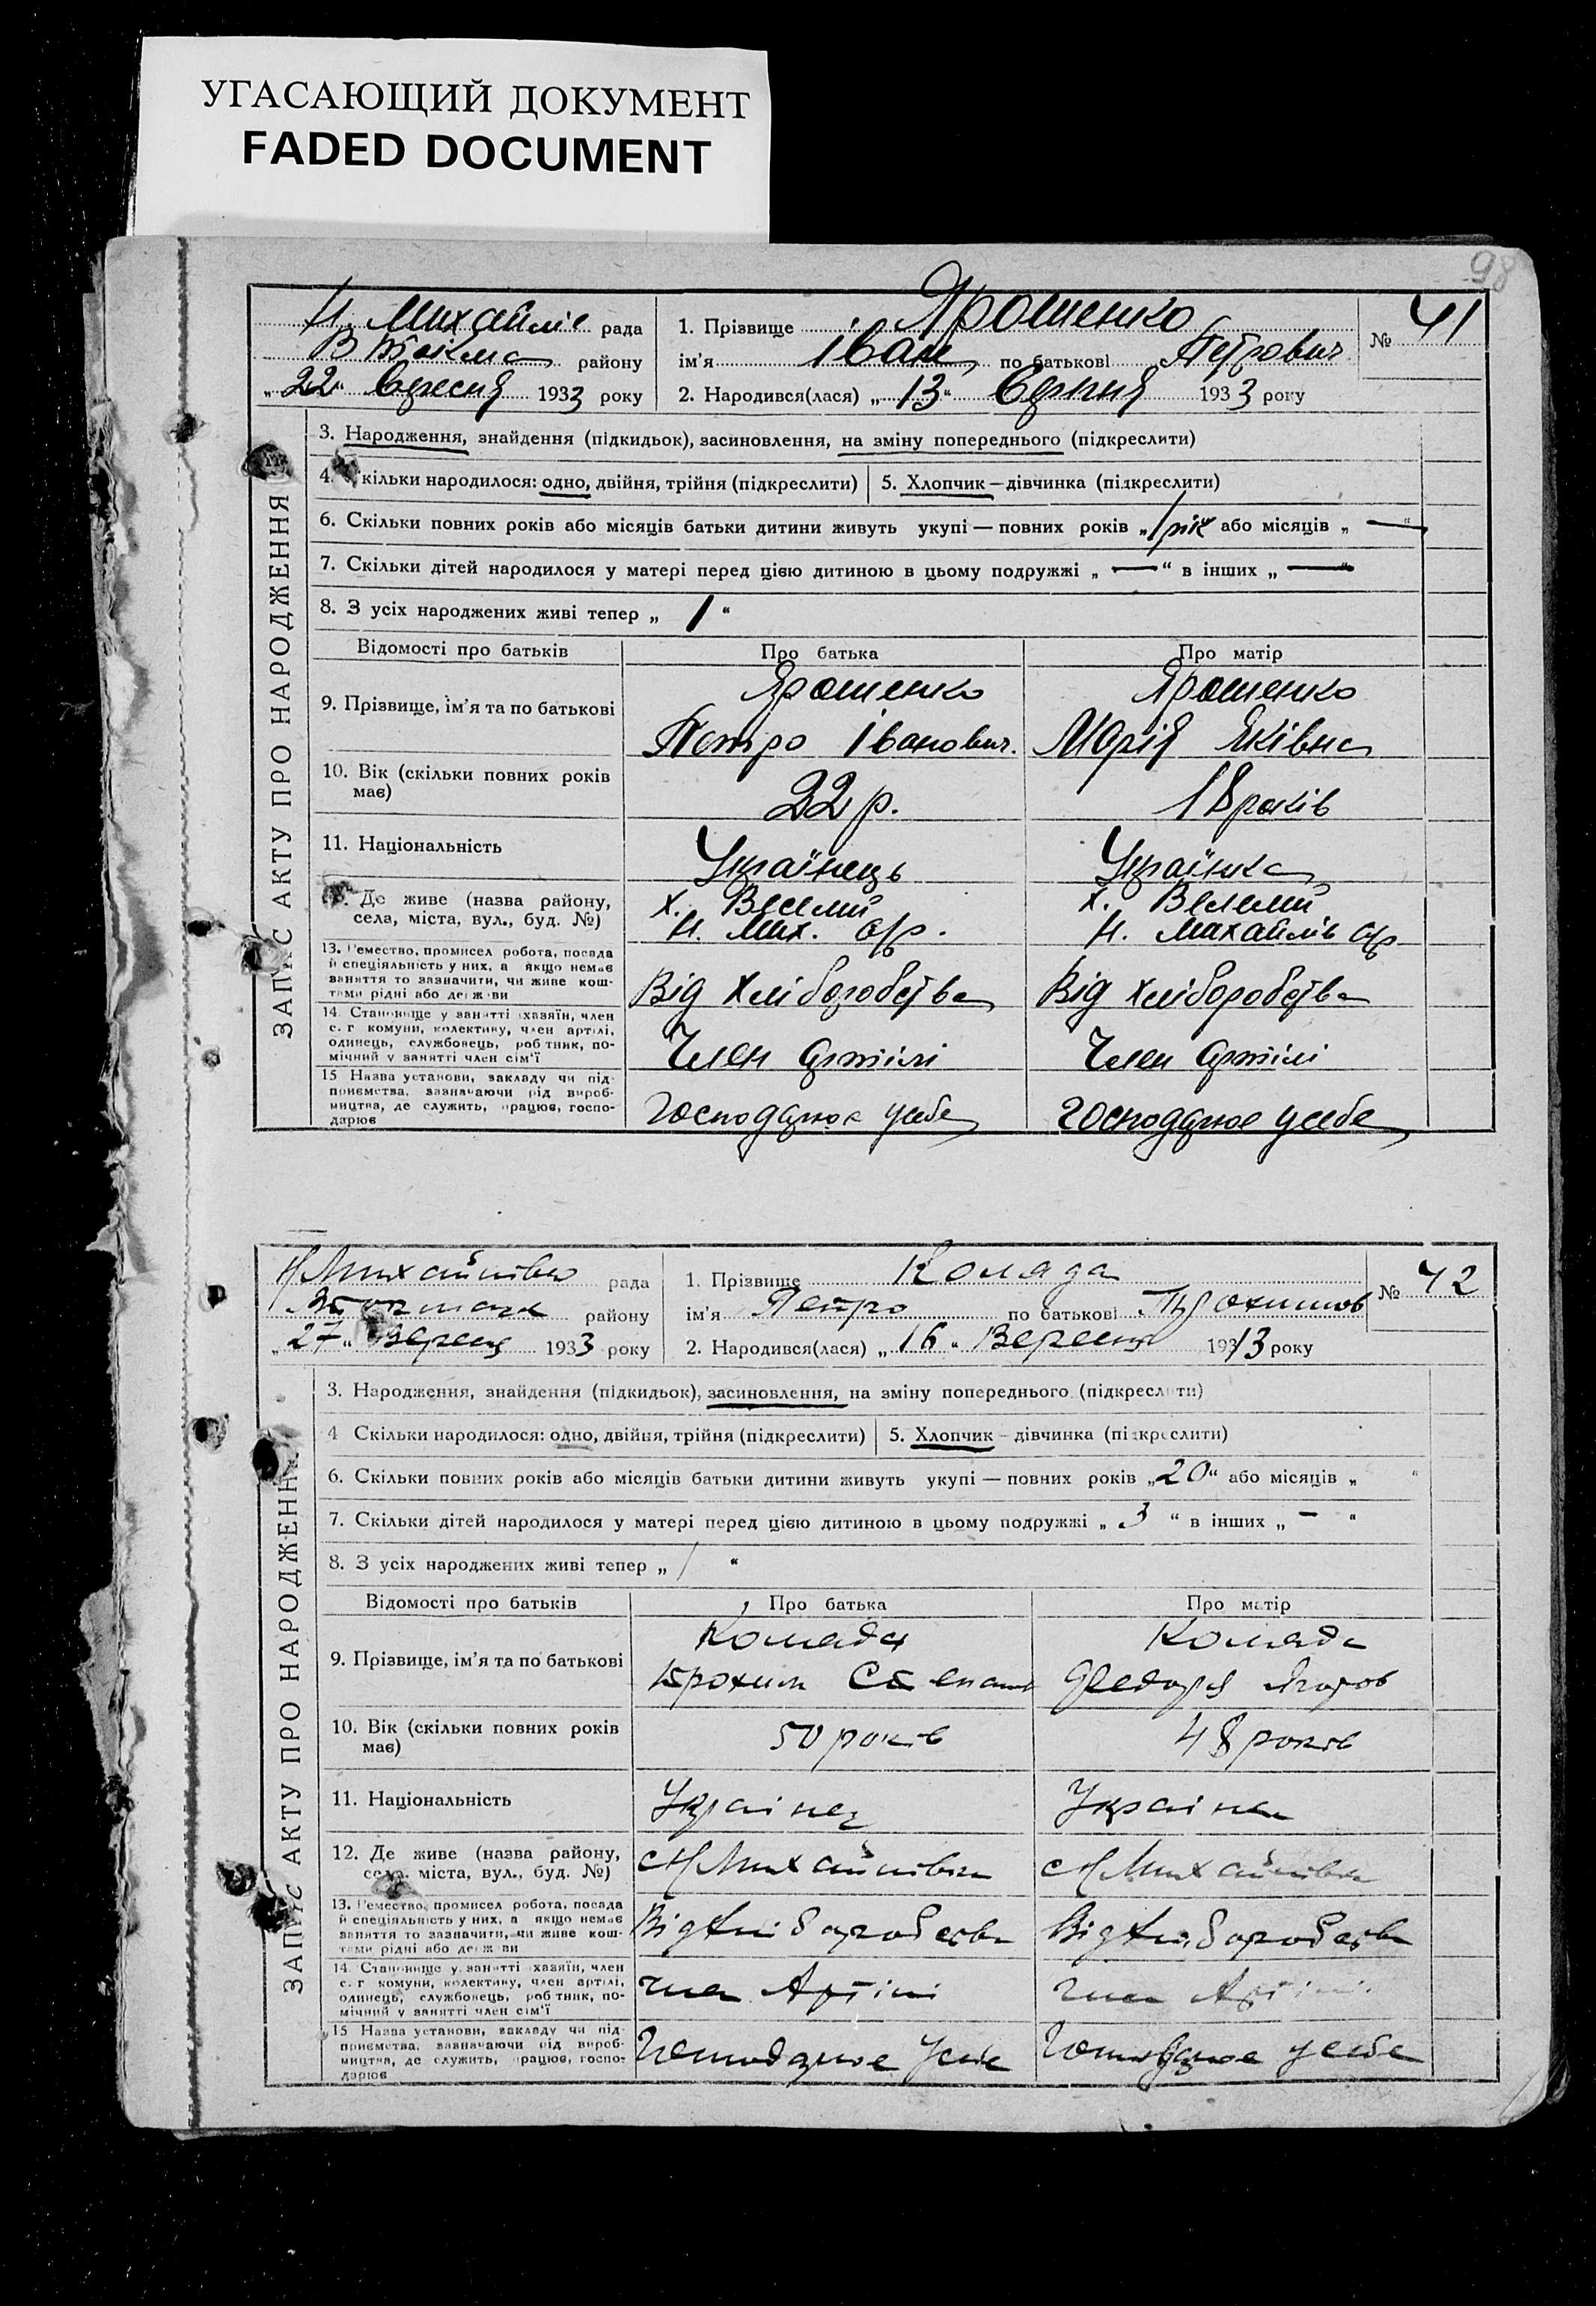 УГАСАЮЩИЙ ДОКУМЕНТ
FADED DOCUMENT
98
Н. Михайлів рада
В Токмак району
„22“ Вересня 1933 року
1. Прізвище Ярошенко
ім'я Іван по батькові Петрович
2. Народився(лася) „13“ Серпня 1933 року
№ 41
ЗАПИС АКТУ ПРО НАРОДЖЕННЯ
3. Народження, знайдення (підкидьок), засиновлення, на зміну попереднього (підкреслити)
4. Скільки народилося: одно, двійня, трійня (підкреслити)
5. Хлопчик — дівчинка (підкреслити)
6. Скільки повних років або місяців батьки дитини живуть укупі — повних років „1 рік або місяців „—“
7. Скільки дітей народилося у матері перед цією дитиною в цьому подружжі „—“ в інших „—“
8. З усіх народжених живі тепер „1“
Відомості про батьків Про батька Про матір
9. Прізвище, ім'я та по батькові
Ярошенко
Петро Іванович.
Ярошенко
Марія Яківна
10. Вік (скільки повних років має)
22 р.
18 років
11. Національність
Українець
Українка
12. Де живе (назва району, села, міста, вул., буд. №)
х. Веселий
Н. Мих. с/р.
х. Веселий
Н. Михайлів с/р
13. Ремество, промисел робота, посада
й спеціяльність у них, а якщо немає
заняття то зазначити, чи живе кош-
тами рідні або держави
Від хліборобства
Від хліборобства
14. Становище у занятті хазяїн, член
с. г комуни, колективу, член артілі,
одинець, службовець, робітник, по-
мічний у занятті член сім'ї
Член артілі
Член артілі
15 Назва установи, закладу чи під-
приємства, зазначаючи рід вироб-
ництва, де служить, працює, госпо-
дарює
Господарює у себе
Господарює у себе
Н Михайлівка рада
В Токмак району
„27“ Вересня 1933 року
1. Прізвище Коляда
ім'я Петро по батькові Трохимов
2. Народився(лася) „16“ Вересня 1913 року
№ 42
ЗАПИС АКТУ ПРО НАРОДЖЕННЯ
3. Народження, знайдення (підкидьок), засиновлення, на зміну попереднього (підкреслити)
4 Скільки народилося: одно, двійня, трійня (підкреслити)
5. Хлопчик — дівчинка (підкреслити)
6. Скільки повних років або місяців батьки дитини живуть укупі — повних років „20“ або місяців „ “
7. Скільки дітей народилося у матері перед цією дитиною в цьому подружжі „3“ в інших „—“
8. З усіх народжених живі тепер „1“
Відомості про батьків Про батька Про матір
9. Прізвище, ім'я та по батькові
Коляда
Трохим Степан
Коляда
10. Вік (скільки повних років має)
50 років
48 років
11. Національність
Українец
Українка
12. Де живе (назва району, села, міста, вул., буд. №)
с Н Михайлівка
с Н Михайлівка
13. Ремество, промисел робота, посада
й спеціяльність у них, а якщо немає
заняття то зазначити, чи живе кош-
тами рідні або держави
Від хліборобства
Від хліборобства
14. Становище у занятті хазяїн, член
с. г комуни, колективу, член артілі,
одинець, службовець, робітник, по-
мічний у занятті член сім'ї
член Артілі
член Артілі
15 Назва установи, закладу чи під-
приємства, зазначаючи рід вироб-
ництва, де служить, працює, госпо-
дарює
Господарює у себе
Господарює у себе